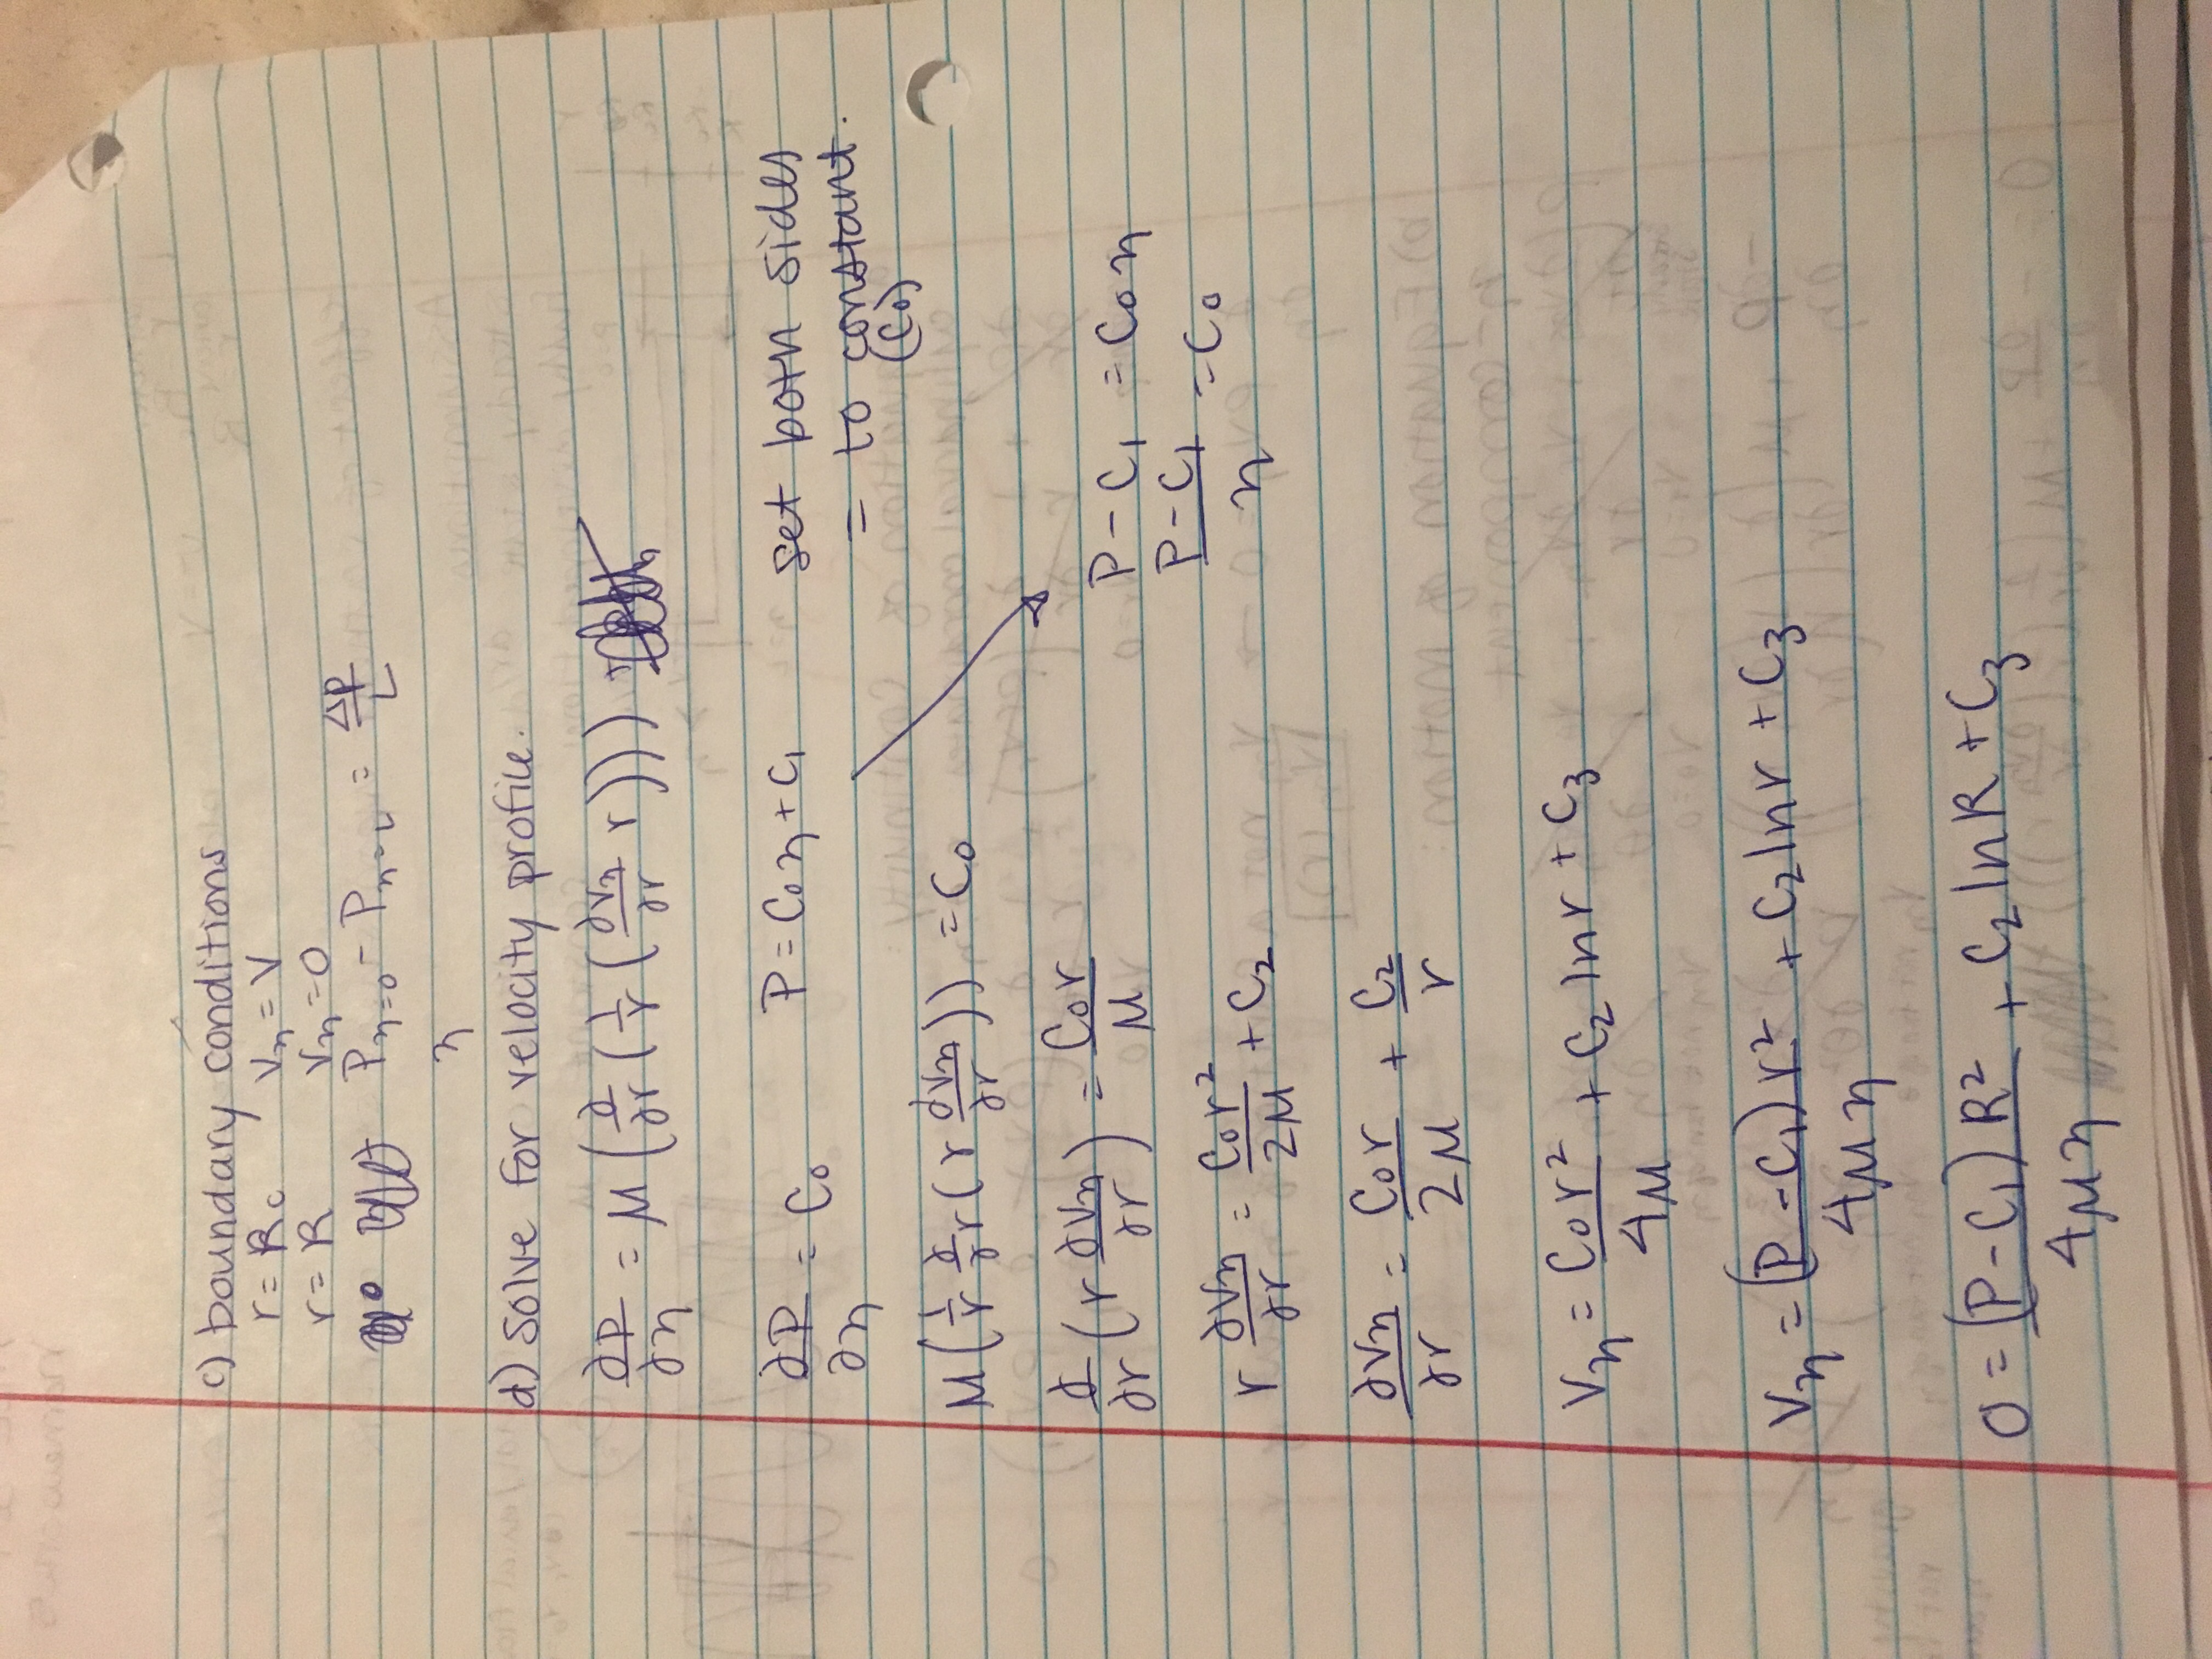 c) boundary conditions
r = Rc   Vη = V
r = R   Vη = 0
Pη=0 - Pη=L = ΔP/L
η
d) solve for velocity profile.
∂P/∂η = M(∂/∂r(1/r(∂Vη/∂r r)))
∂P/∂η = C₀   P = C₀η + C₁   set both sides
= to constant.
(C₀)
M(1/r ∂/∂r(r ∂Vη/∂r)) = C₀
∂/∂r(r ∂Vη/∂r) = C₀r/M
P - C₁ = C₀η
(P - C₁)/η = C₀
r ∂Vη/∂r = C₀r²/2M + C₂
∂Vη/∂r = C₀r/2M + C₂/r
Vη = C₀r²/4M + C₂ ln r + C₃
Vη = (P - C₁)r²/4Mη + C₂ ln r + C₃
0 = (P - C₁)R²/4Mη + C₂ ln R + C₃